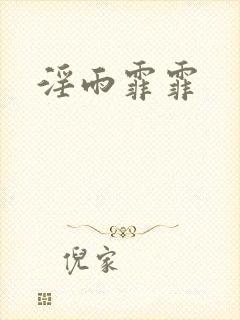 淫雨霏霏
倪家